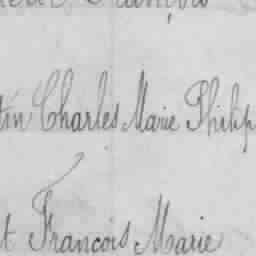 François
tin Charles Marie Philip
t François Marie